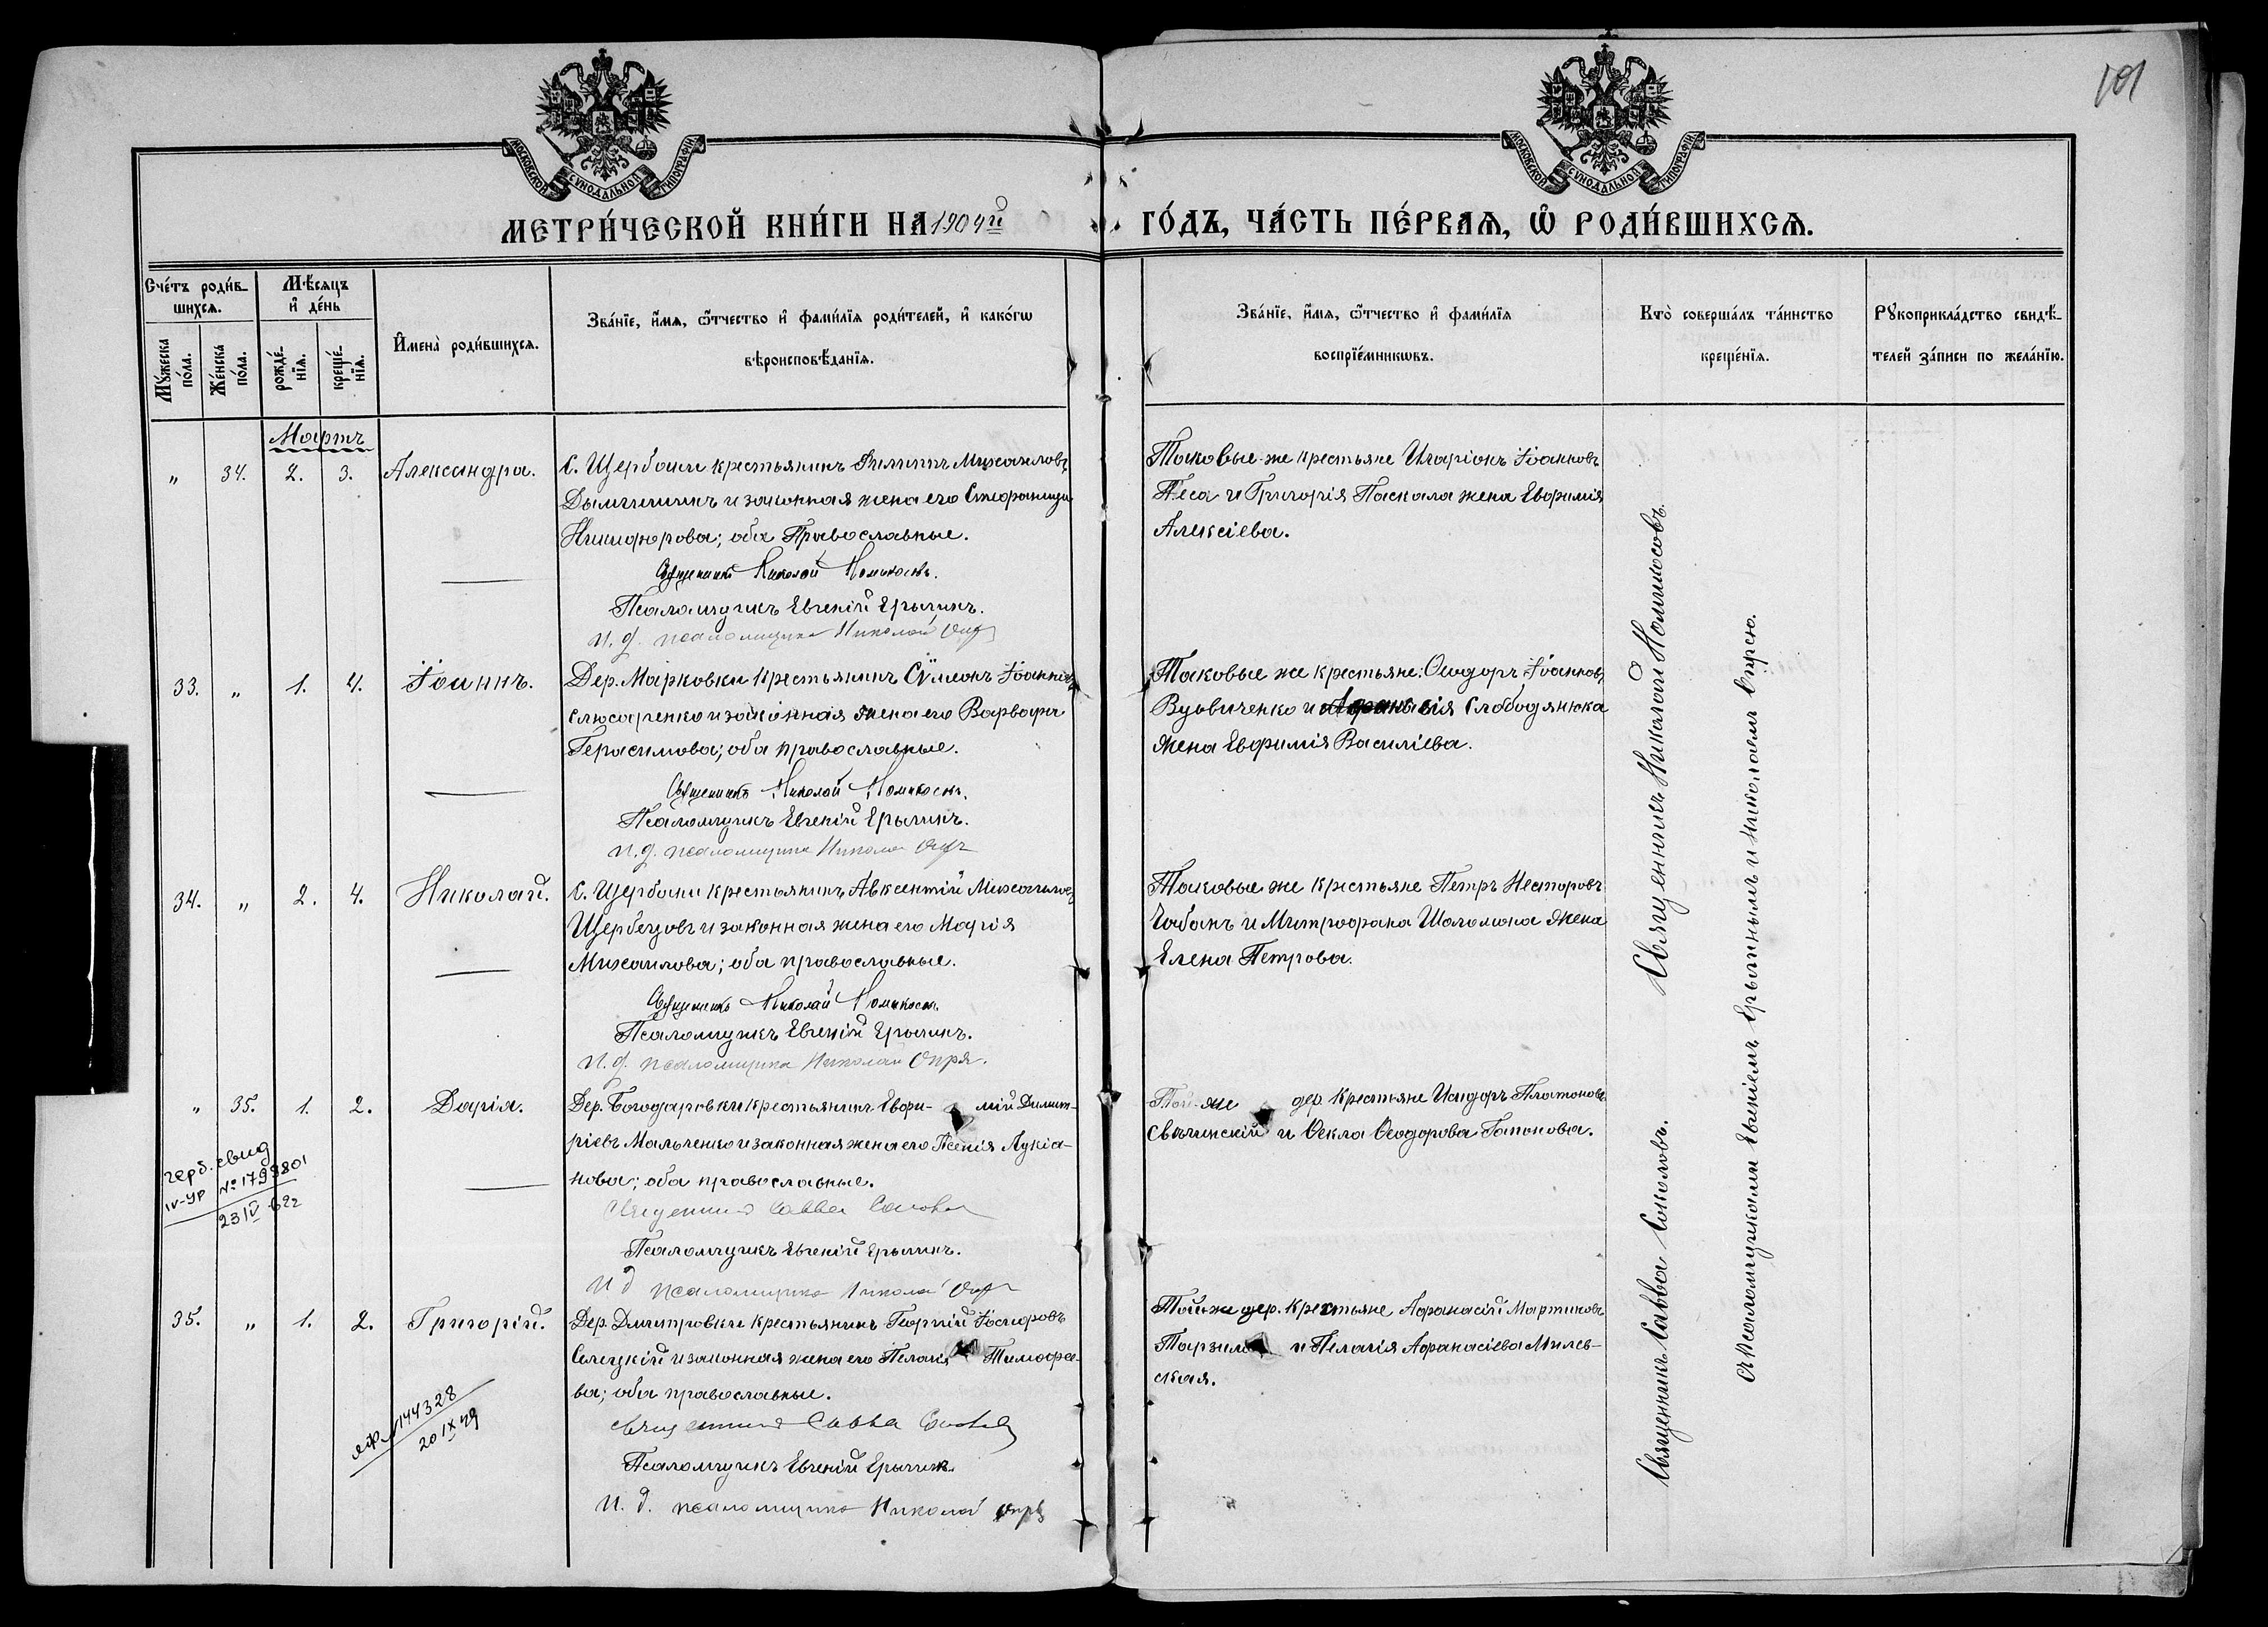 101
МОСКОВСКОЙ СѴНОДАЛЬНОЙ ТИПОГРАФІИ
МОСКОВСКОЙ СѴНОДАЛЬНОЙ ТИПОГРАФІИ
МЕТРИ́ЧЕСКОЙ КНИ́ГИ НА 1904й ГО́ДЪ, ЧА́СТЬ ПЕ́РВАѦ, Ѽ РОДИ́ВШИХСѦ.
Сче́тъ роди́в-
шихсѧ.
Мꙋ́жеска по́ла.
Же́нска по́ла.
Мѣ́сѧцъ и҆ де́нь
рожде́-нїѧ.
креще́-нїѧ.
И҆мена̀ роди́вшихсѧ.
Зва́нїе, и҆́мѧ, ѻ҆́тчество и҆ фами́лїѧ роди́телей, и҆ како́гѡ
вѣроисповѣ́данїѧ.
Зва́нїе, и҆́мѧ, ѻ҆́тчество и҆ фами́лїѧ
воспрїе́мникѡвъ.
Кто̀ соверша́лъ та́инство
креще́нїѧ.
Рꙋкоприкла́дство свидѣ́-
телей за́писи по жела́нїю.
Мартъ
„ 34. 2. 3. Александра. С. Щербани крестьянинъ Филиппъ Михаиловъ
и законная жена его Стефанида
Никифорова; оба Православные.
Священникъ Николай
Псаломщикъ Евгеній Ерылинъ.
И. д. псаломщика Николай Опря
Таковые-же крестьяне Иларіонъ Іоанновъ
и Григорія Паскала жена Евфимія
Алексіева.
33. „ 1. 4. Іоаннъ. Дер. Марковки крестьянинъ Сѵмеонъ Іоанновъ
Слюсаренко и законная жена его Варвара
Герасимова; оба православные.
Священникъ Николай
Псаломщикъ Евгеній Ерылинъ.
И. д. псаломщика Николай Опря
Таковые же крестьяне: Ѳеодоръ Іоанновъ
Вуьвиченко и Афанасія Слободянюка
жена Евфимія Василіева.
34. „ 2. 4. Николай. С. Щербани крестьянинъ Авксентій Михаиловъ
Щербецовъ и законная жена его Марія
Михаилова; оба православные.
Священникъ Николай
Псаломщикъ Евгеній Ерылинъ.
И. д. псаломщика Николай Опря.
Таковые же крестьяне Петръ Несторовъ
Чабанъ и Митрофана Шаломана жена
Елена Петрова.
„ 35. 1. 2. Дарія. Дер. Богодаровки крестьянинъ Евфи- мій Димит-
ріевъ Мальченко и законная жена его Ксенія Лукіа-
нова; оба православные.
Священникъ Савва Соколовъ
Псаломщикъ Евгеній Ерылинъ.
И д псаломщика Николай Опря
Той-же дер. крестьяне Исидоръ Платоновъ
Свѣчинскій и Ѳекла Ѳеодорова Гапонова.
герб. свид
IV-УР №1799801
23 IV 62г
35. „ 1. 2. Григорій. Дер. Дмитровки крестьянинъ Георгій
Селецкій и законная жена его Пелагія Тимофее-
ва; оба православные.
Священникъ Савва Соколовъ
Псаломщикъ Евгеній Ерылинъ.
И. д. псаломщика Николай Опря
Той-же дер. крестьяне Афанасій Мартиновъ
и Пелагія Афанасіева Милев-
ская.
144328
20 IX 49
Священникъ Николай Номикосовъ.
Священникъ Савва Соколовъ.
съ Псаломщиками Евгеніемъ Ерылинымъ и Николаемъ Опрею.